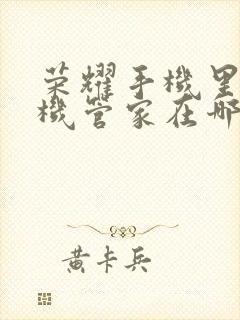 荣耀手機里
機管家在哪
黄卡兵